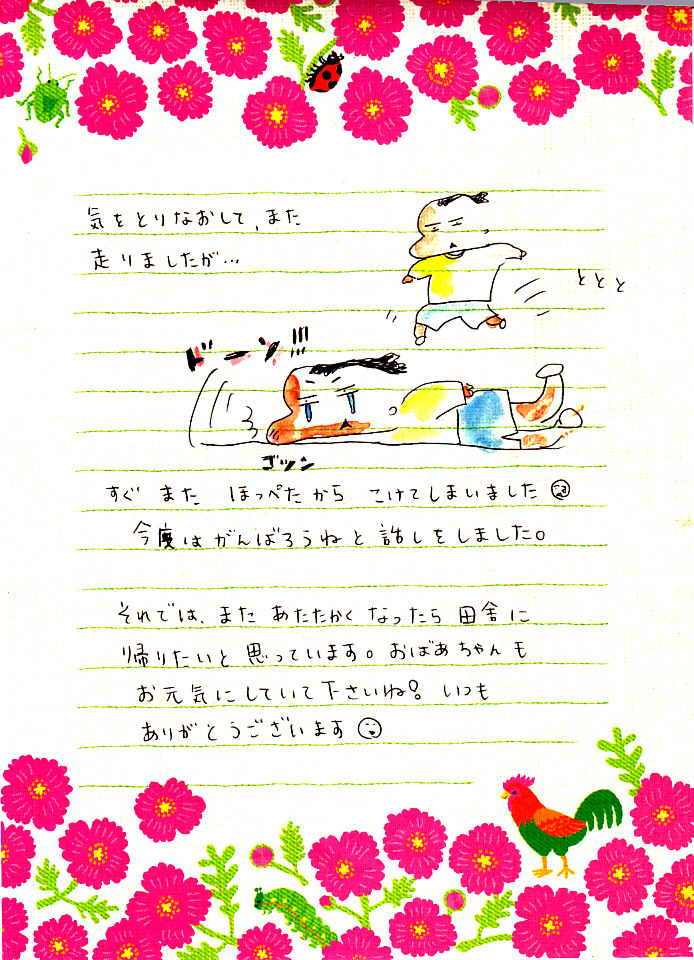 気をとりなおして、また
走りましたが…
ととと
ドーン!!!
ゴツン
すぐ また ほっぺたから こけてしまいました
今度は がんばろうねと 話しをしました。
それでは、また あたたかく なったら 田舎に
帰りたいと 思っています。おばあちゃんも
お元気にしていて下さいね! いつも
ありがとうございます